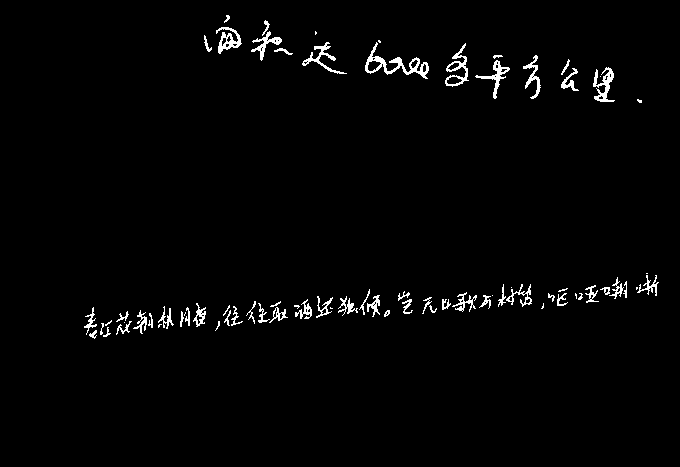 面积达6000多平方公里.
春江花朝秋月夜,往往取酒还独倾。岂无山歌与村笛,呕哑嘲哳